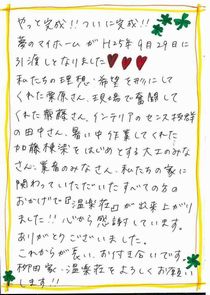 やっと完成!! ついに完成!!
夢のマイホームがH25年9月29日に
引渡しとなりました♥♥♥
私たちの理想・希望を形にして
くれた栗原さん、現場で奮闘して
くれた齋藤さん、インテリアのセンス抜群
の田中さん、暑い中作業してくれた
加藤棟梁をはじめとする大工のみな
さん、業者のみなさん、私たちの家に
関わっていただいたすべての方の
おかげで『温楽荘』が出来上がり
ました!! 心から感謝しています。
ありがとうございました。
これからが長い、お付き合いです。
柳田家・温楽荘をよろしくお願い
します!!